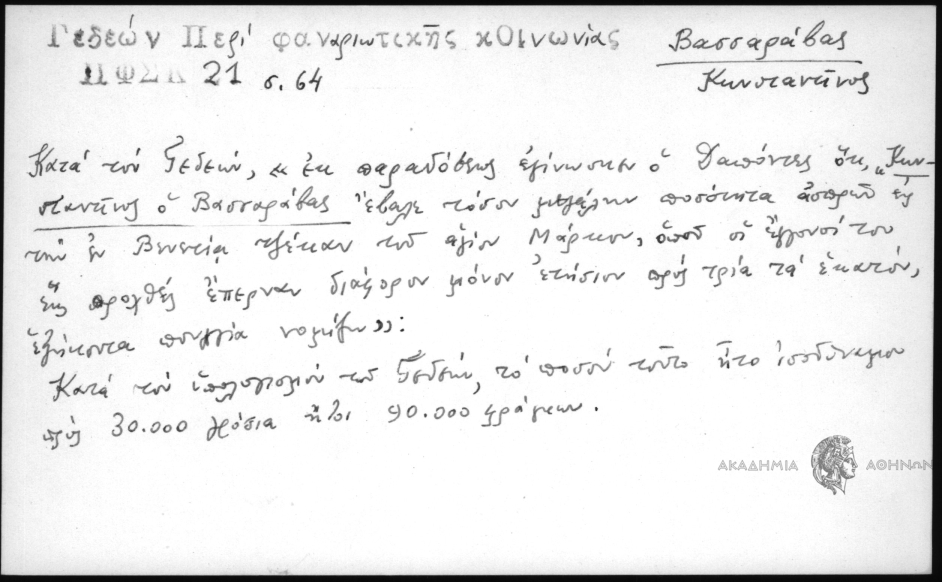 Γεδεών Περί φαναριωτικῆς κΟινωνίας
ΠΦΣΚ 21 σ. 64
Βασσαράβας
Κωνσταντῖνος
Κατά τόν Γεδεών, «ἐκ παραδόσεως ἐγίνωσκεν ὁ Δαπόντες ὅτι, "Κων-
σταντῖνος ὁ Βασσαράβας ἔβαλε τόσον μεγάλην ποσότητα ἀσπρῶν εἰς
τήν ἐν Βενετίᾳ τζέκαν τοῦ ἁγίου Μάρκου, ὅπου οἱ ἔγγονοί του
ἕως προχθές ἔπερναν διάφορον μόνον ἐτήσιον πρός τρία τά ἑκατόν,
ἑξήκοντα πουγγία νομίζω»:
Κατά τόν ὑπολογισμόν τοῦ Γεδεών, τό ποσόν τοῦτο ἦτο ἰσοδύναμον
πρός 30.000 γρόσια ἤτοι 90.000 φράγκων.
ΑΚΑΔΗΜΙΑ ΑΘΗΝΩΝ